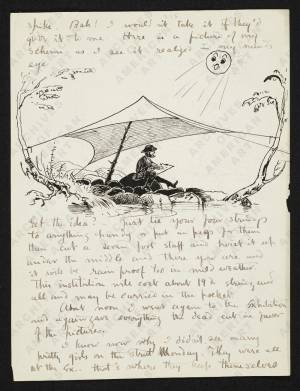 spike. Bah! I would'nt take it if they'd
give it to me. Here is a picture of my
scheme as I see it realized in my mind's
eye.
Get the idea? Just tie your four strings
to anything handy or put in pegs for them
then cut a seven foot staff and hoist it up
under the middle and there you are and
it will be rain proof too in mild weather.
This institution will cost about 19/- string and
all and may be carried in the pocket.
noon I went again to the Exhibition
and again gave everything the dead cut in favor
of the pictures.
I know now why I didn't see many
pretty girls on the Strut Monday. They were all
at the Ex. that's where they keep themselves